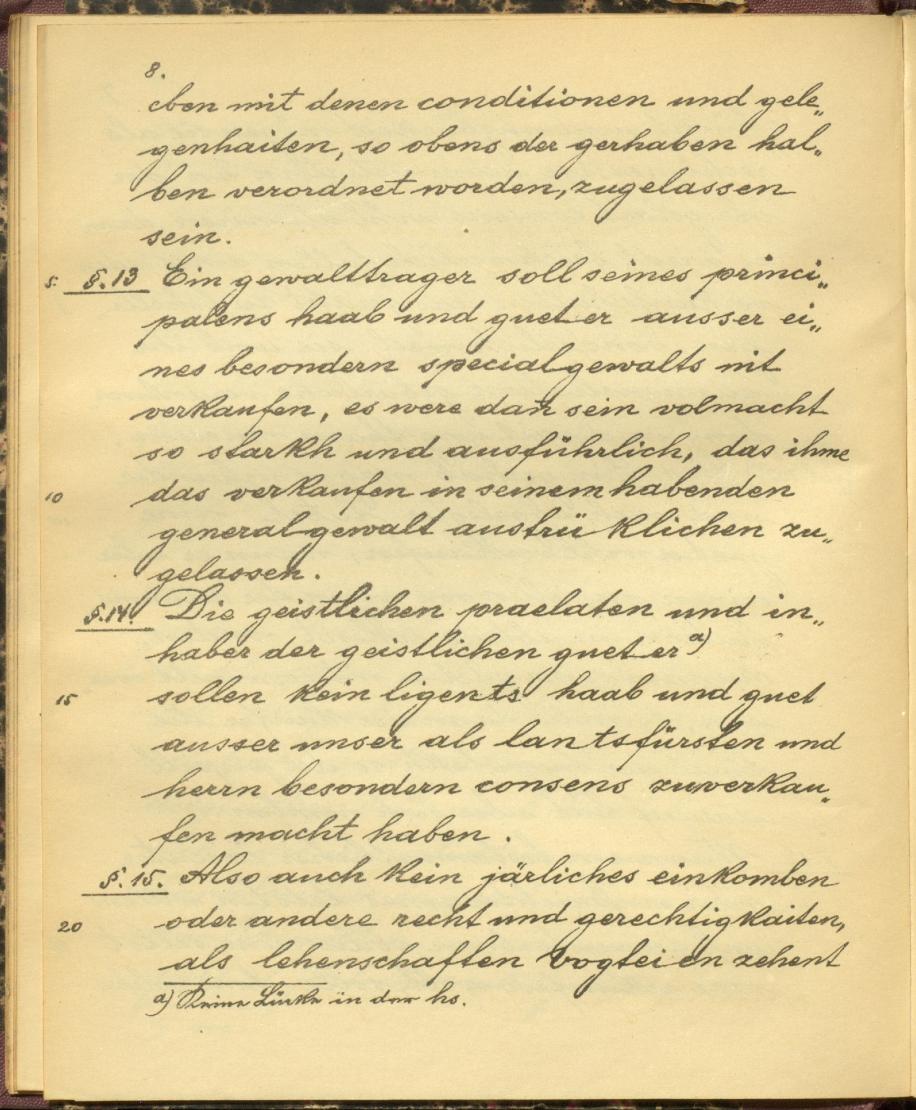 8.
eben mit denen conditionen und gele„
genhaiten, so obens der gerhaben hal„
ben verordnet worden, zugelassen
sein.
5. §.13 Ein gewalttrager soll seines princi„
palens haab und gueter ausser ei„
nes besondern specialgewalts nit
verkaufen, es were dan̄ sein volmacht
so starkh und ausführlich, das ihme
10 das verkaufen in seinem habenden
generalgewalt austrüklichen zu„
gelassen.
§.14. Die geistlichen praelaten und in„
haber der geistlichen gueter a)
15 sollen kein ligents haab und guet
ausser unser als lantsfürsten und
herrn besondern consens zuverkau„
fen macht haben.
§.15. Also auch kein järliches einkomben
20 oder andere recht und gerechtigkaiten,
als lehenschaften vogteien zehent
a) Keine Lücke in der hs.